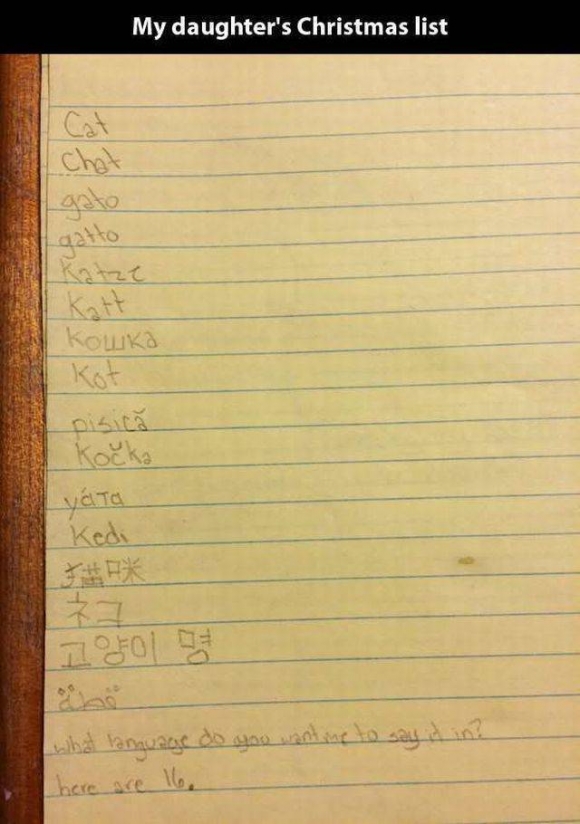 My daughter's Christmas list
Cat
Chat
gato
gatto
Katze
Katt
кошка
Kot
pisică
Kočka
γάτα
Kedi
猫咪
ネコ
고양이 명
what language do you want me to say it in?
here are 16.